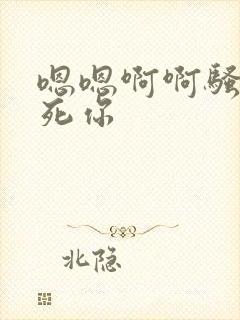 嗯嗯啊啊骚
死你
北隐